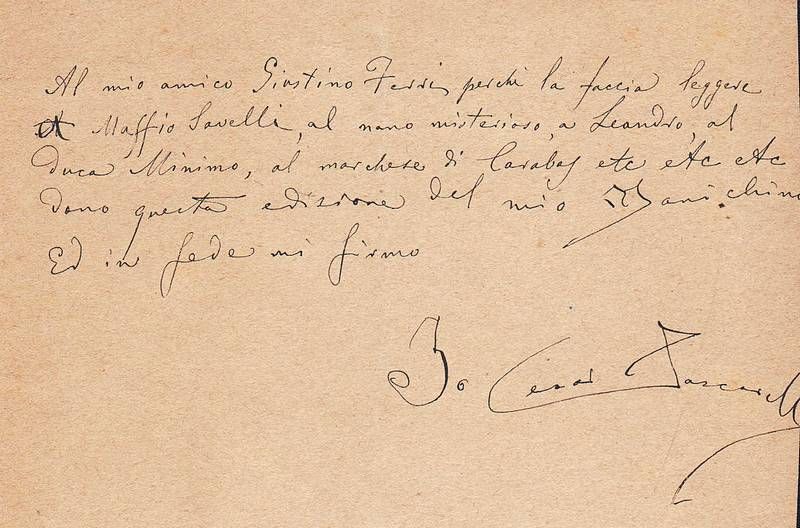 Al mio amico Giustino Ferri, perchè la faccia leggere
a Maffio Savelli, al nano misterioso, a Leandro, al
duca Minimo, al marchese di Carabas etc etc etc
dono questa edizione del mio Manichino
Ed in fede mi firmo
Io Cesar Pascarell